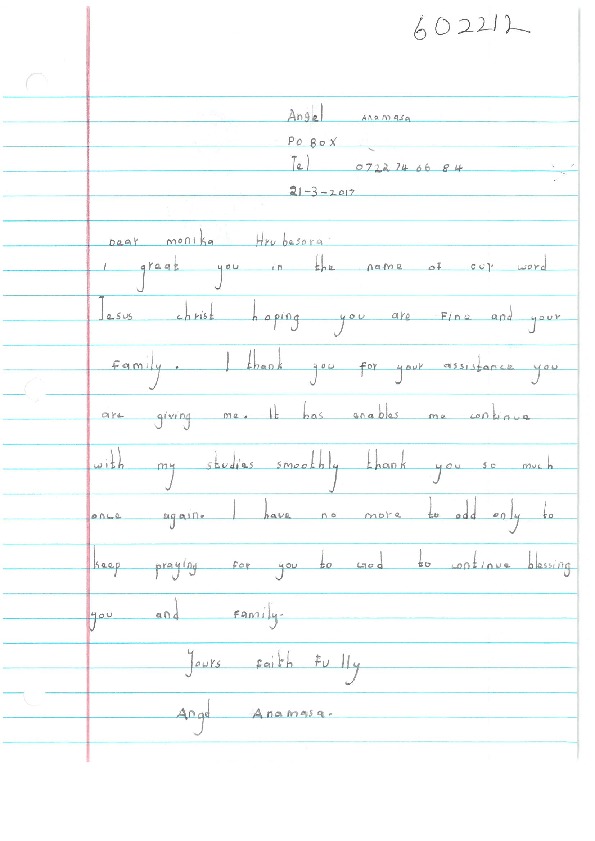 602212
Angel Anamasa
PO BOX
Tel 0722 74 66 84
21-3-2017
Dear monika Hrubesova
I great you in the name of our word
Jesus christ hoping you are Fine and your
Family. I thank you for your assistance you
are giving me. It has enables me continue
with my studies smoothly thank you so much
once again. I have no more to add only to
keep praying for you to God to continue blessing
you and Family.
Yours Faith Fully
Angel Anamasa.